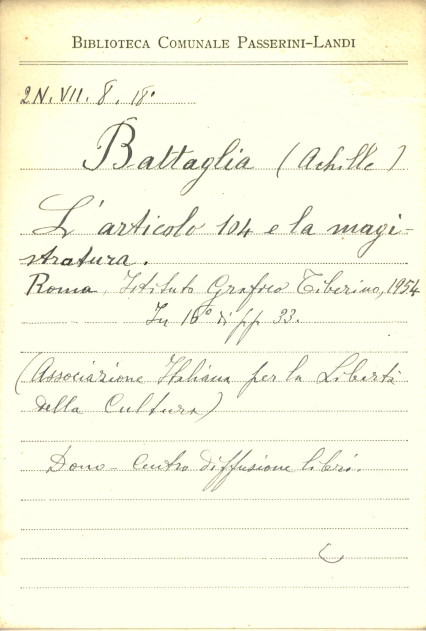 BIBLIOTECA COMUNALE PASSERINI-LANDI
2N. VII. 8. 18.
Battaglia (Achille)
L'articolo 104 e la magi-
stratura.
Roma, Istituto Grafico Tiberino, 1954
In 16° di pp. 33.
(Associazione Italiana per la Libertà
della Cultura)
Dono - Centro diffusione libri.